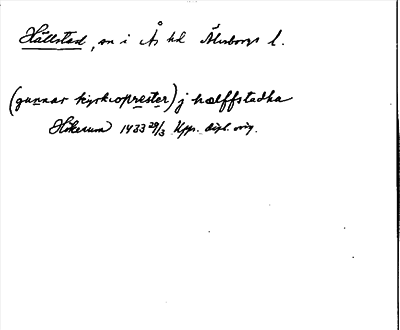 Hällstad, sn i Ås hd Älvsborgs l.
(gunnar kyrkioprester) j hælffstadha
Hökerum 1433 29/3 Upps. dipl. orig.